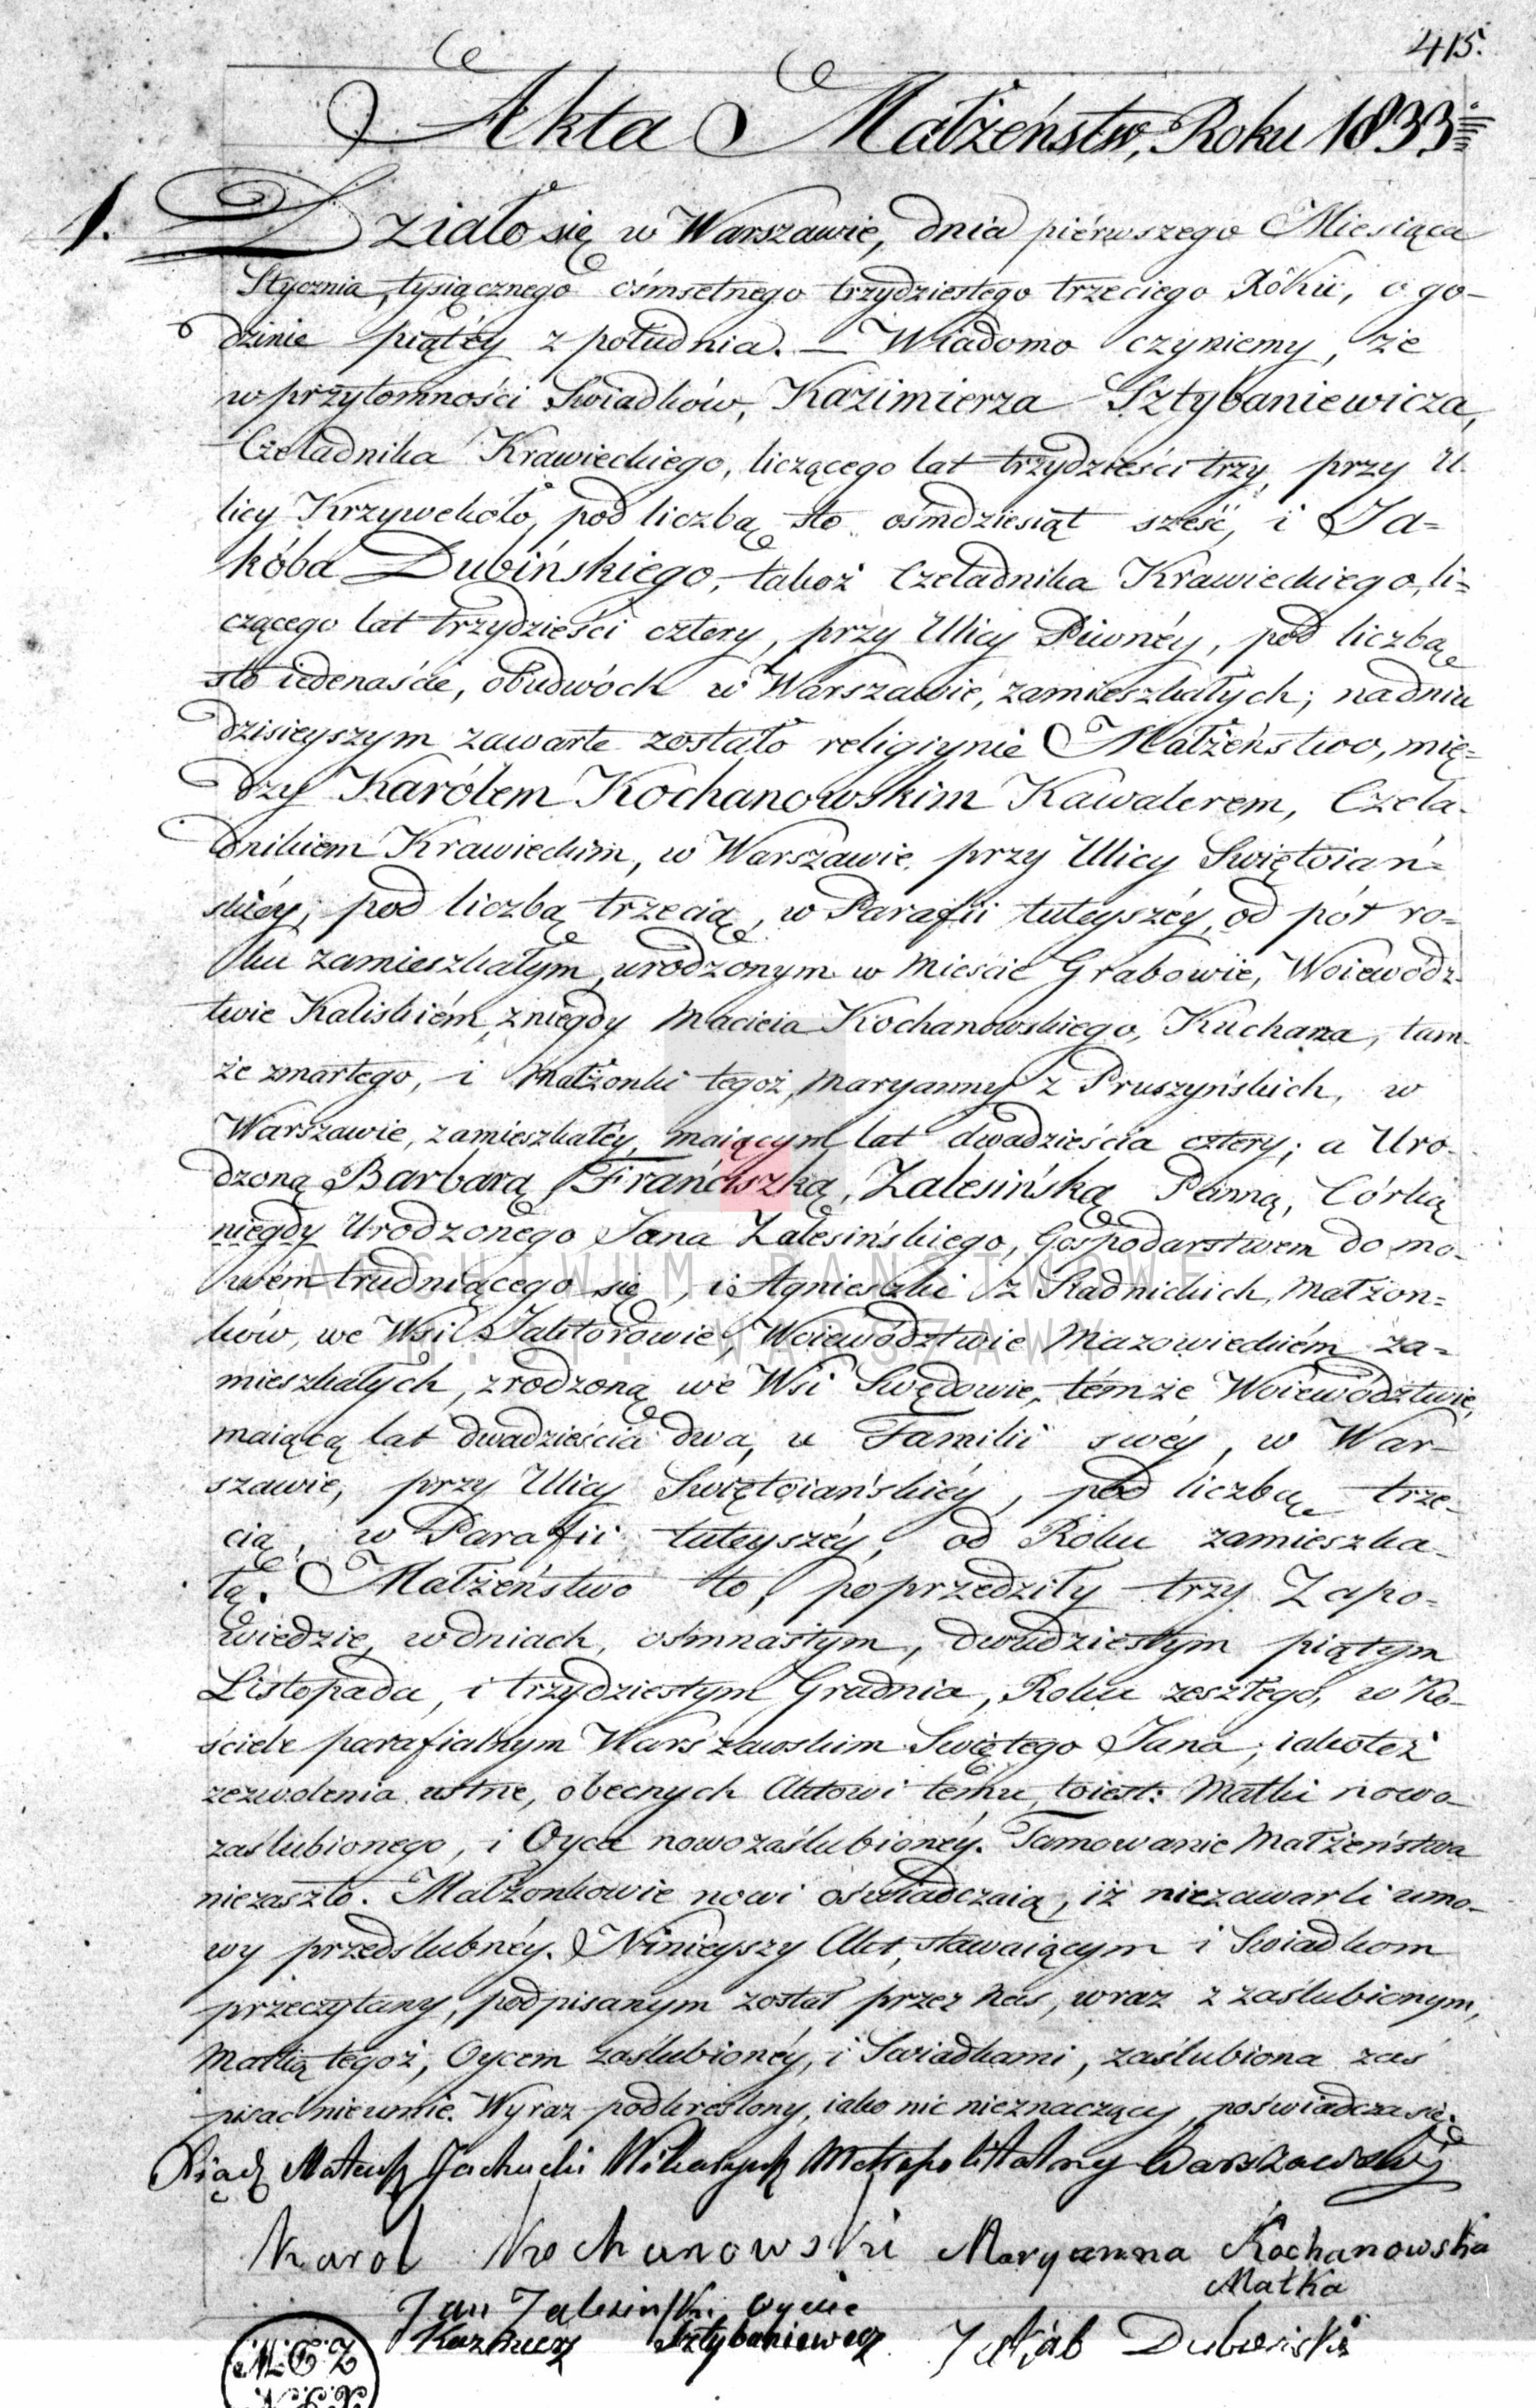 415.
Akta Małżeństw, Roku 1833
1. Działo się w Warszawie, dnia piérwszego Miesiąca
Stycznia, tysiącznego ośmsetnego trzydziestego trzeciego Róku, o go-
dzinie piątéy z południa. — Wiadomo czyniemy, że
w przytomności Swiadków, Kazimierza Sztybaniewicza,
Czeladnika Krawieckiego, liczącego lat trzydzieści trzy, przy U-
licy Krzywekoło, pod liczbą sto ośmdziesiąt sześć, i Ja=
kóba Dubińskiego, takoż Czeladnika Krawieckiego, li=
czącego lat trzydzieści cztery, przy Ulicy Piwnéy, pod liczbą
sto iedenaście, obudwóch w Warszawie, zamieszkałych; na dniu
dzisieyszym zawarte zostało religiynie Małżeństwo, mię=
dzy Karólem Kochanowskim Kawalerem, Czela-
dnikiem Krawieckim, w Warszawie przy Ulicy Swiętoiań=
skiéy, pod liczbą trzecią, w Parafii tuteyszéy, od pół ro=
ku zamieszkałym, urodzonym w Mieście Grabowie, Woiewódz-
twie Kaliskiém, z niegdy Macieia Kochanowskiego, Kucharza, tam-
że zmarłego, i Małżonki tegoż, Maryanny z Pruszyńskich, w
Warszawie, zamieszkałéy, maiącym lat dwadzieścia cztery; a Uro-
dzoną Barbarą Franciszką, Zalesińską Panną, Córką
niegdy Urodzonego Jana Zalesińskiego, Gospodarstwem domo-
wém trudniącego się, i Agnieszki z Radnickich, Małżon=
ków, we Wsi Jaktorowie, Woiewództwie Mazowieckiém za=
mieszkałych, zrodzoną we Wsi Swędowie, témże Woiewództwie,
maiącą lat dwadzieścia dwa, u Familii swéy, w War-
szawie, przy Ulicy Swiętoiańskiéy, pod liczbą trze-
cią, w Parafii tuteyszéy, od Roku zamieszka-
łą. Małżeństwo to, poprzedziły trzy Zapo-
wiedzie, w dniach, ośmnastym, dwudziestym piątym
Listopada, i trzydziestym Grudnia, Roku zeszłego, w Ko-
ściele parafialnym Warszawskim Swiętego Jana, iakoteż
zezwolenia ustne, obecnych Aktowi temu, toiest: Matki nowo-
zaślubionego, i Oyca nowozaślubionéy. Tamowanie Małżeństwa
niezaszło. Małżonkowie nowi oświadczaią, iż niezawarli umo-
wy przedślubnéy. Ninieyszy Akt, stawaiącym i Swiadkom
przeczytany, podpisanym został przez Nas, wraz z zaślubionym,
Matką tegoż, Oycem zaślubionéy, i Swiadkami, zaślubiona zaś
pisać nieumie. Wyraz podkreślony, iako nic nieznaczący, poświadcza się.
Xiądz Mateusz Wikaryusz Metropolitalny Warszawski
Karol Kochanowski Maryanna Kochanowska
Matka
Jan Zalesinski oyciec
Kazmierz Sztybaniewicz Jakób Dubinski
ARCHIWUM PAŃSTWOWE
M. ST. WARSZAWY